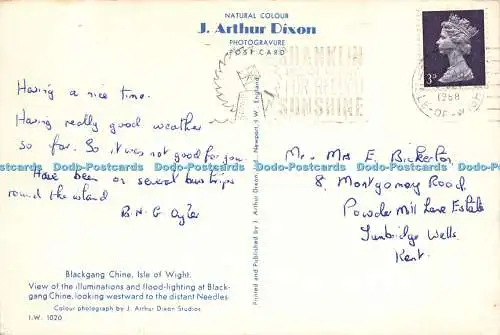 NATURAL COLOUR
J. Arthur Dixon
PHOTOGRAVURE
POST CARD
SHANKLIN
FOR
SUNSHINE
3D
1968
ISLE OF WIGHT
Having a nice time.
Having really good weather
so far. So it was not good for you.
Have been on several bus trips
round the island
B.N.G.
Mr. Mrs E. Bickerton,
8, Montgomery Road,
Powder Mill Lane Estate
Tunbridge Wells.
Kent.
Dodo-Postcards Dodo-Postcards Dodo-Postcards Dodo-Postcards Dodo-Postcards
Printed and Published by J. Arthur Dixon Ltd., Newport, I.W., England.
Blackgang Chine, Isle of Wight.
View of the illuminations and flood-lighting at Black-
gang Chine, looking westward to the distant Needles
Colour photograph by J. Arthur Dixon Studios
I.W. 1020